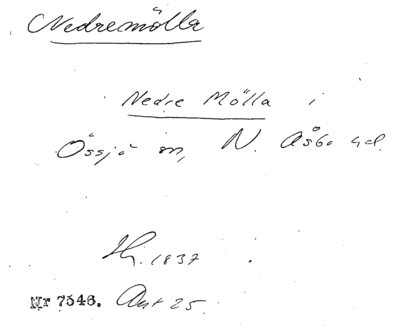 Nedremölla
Nedre Mölla i
Össjö sn, N. Åsbo hd.
Hr. 1837
Nr 7546. Ant 25.